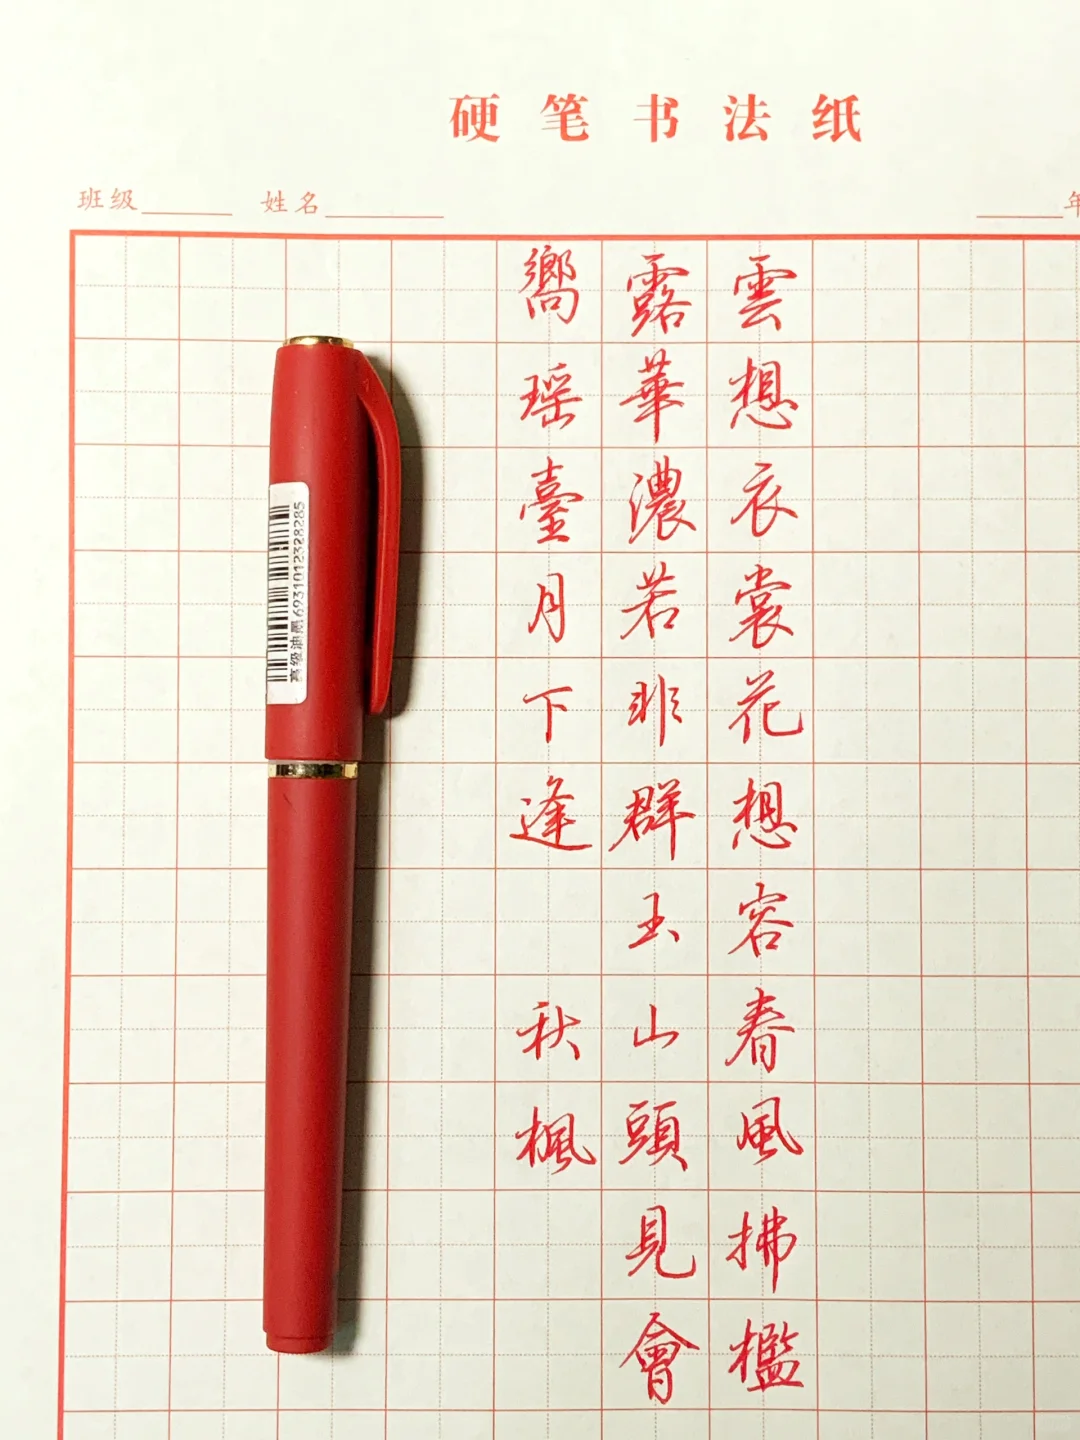 硬笔书法纸
班级 姓名 年
雲想衣裳花想容春風拂檻
露華濃若非群玉山頭見會
嚮瑶臺月下逢 秋楓
高级油墨6931012328285